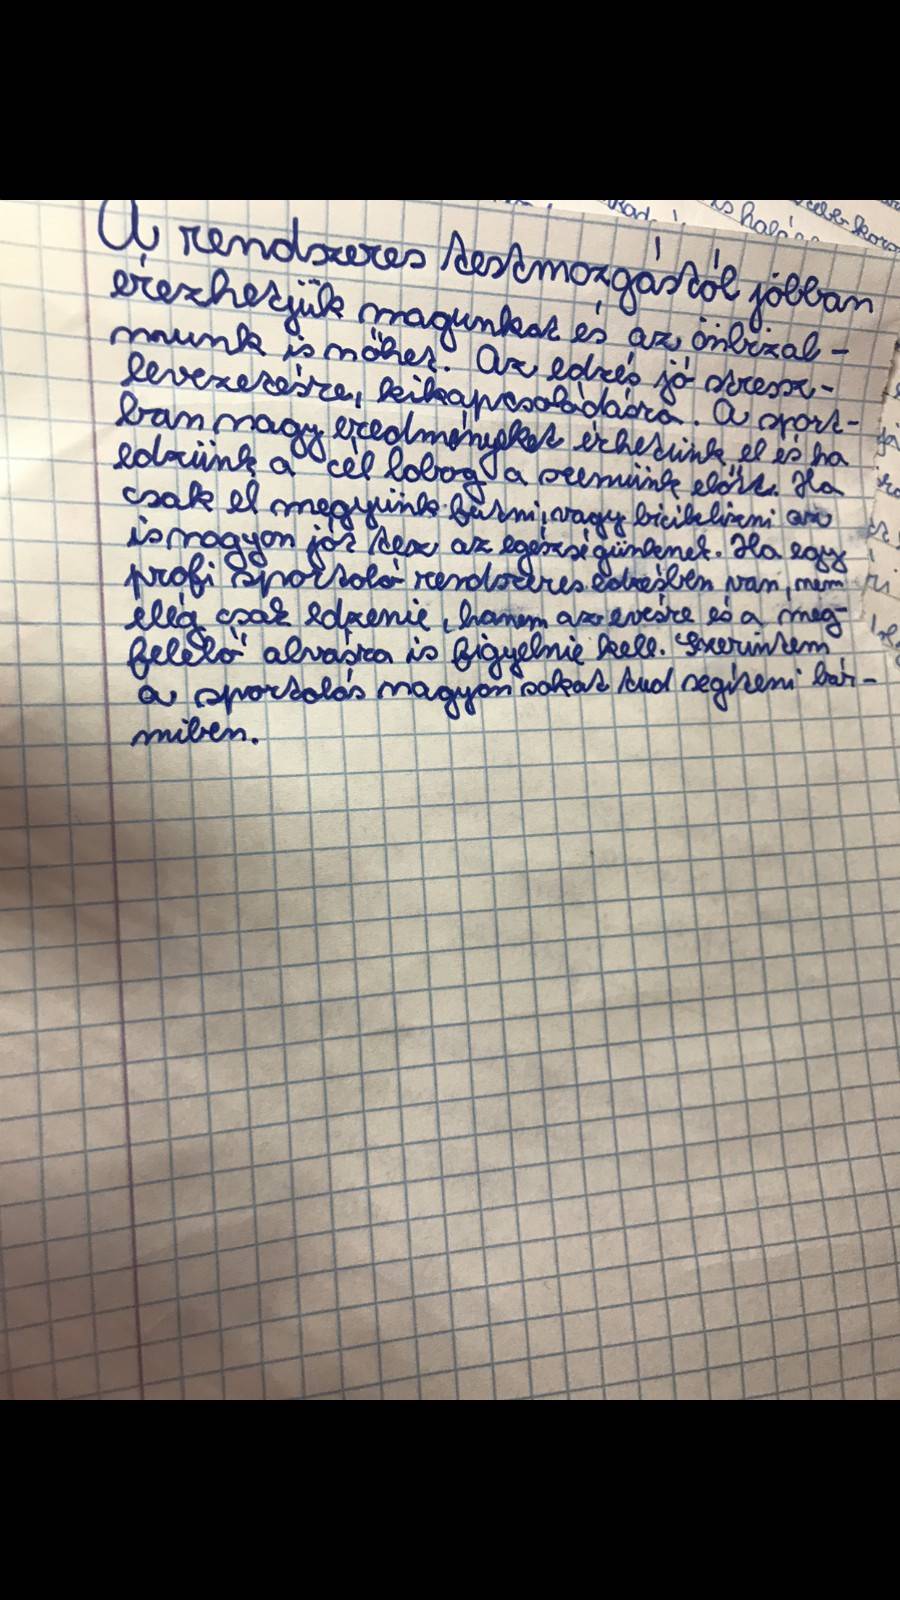 A rendszeres testmozgástól jobban
érezhetjük magunkat és az önbizal-
munk is nőhet. Az edzés jó stressz-
levezetésre, kikapcsolódásra. A sport-
ban nagy eredményeket érhetünk el és ha
edzünk a cél lobog a szemünk előtt. Ha
csak el megyünk futni, vagy biciklizni az
is nagyon jót tesz az egészségünknek. Ha egy
profi sportoló rendszeres edzésben van, nem
elég csak edzenie, hanem az evésre és a meg-
felelő alvásra is figyelnie kell. Szerintem
a sportolás nagyon sokat tud segíteni bár-
miben.